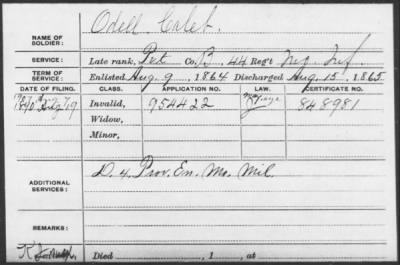 NAME OF SOLDIER: Odell Calet.
SERVICE: Late rank, Pvt Co. B, 44 Reg't Mo. Inf.
TERM OF SERVICE: Enlisted Aug. 9, 1864 Discharged Aug. 15, 1865
DATE OF FILING. CLASS. APPLICATION NO. LAW. CERTIFICATE NO.
Invalid, 954422 848981
Widow,
Minor,
ADDITIONAL SERVICES: D. 4. Prov. En. Mo. Mil.
REMARKS:
Died , 1 , at